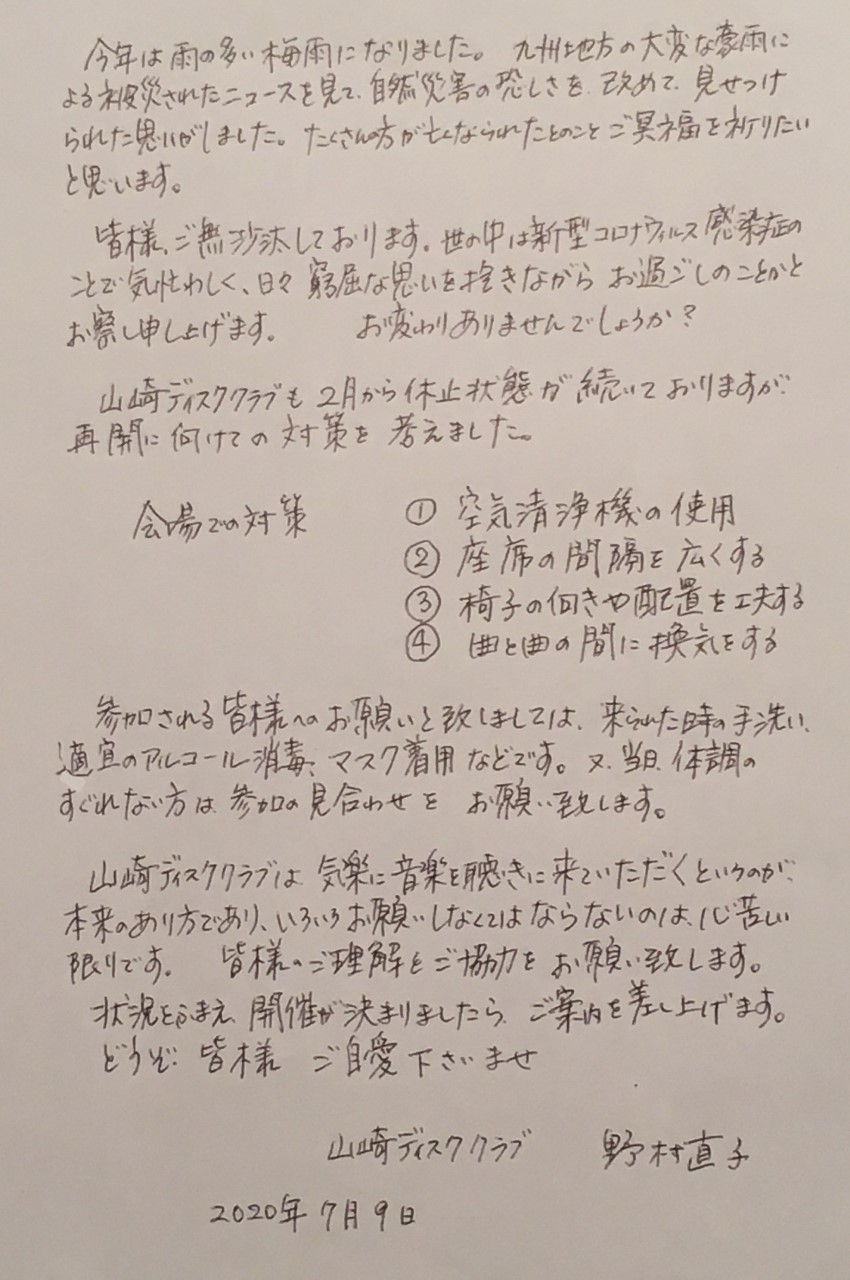 今年は雨の多い梅雨になりました。 九州地方の大変な豪雨に
よる被災されたニュースを見て、自然災害の恐しさを、改めて、見せつけ
られた思いがしました。たくさんの方が亡くなられたとのこと ご冥福を祈りたい
と思います。
皆様、ご無沙汰しております。世の中は新型コロナウィルス感染症の
ことで気忙わしく、日々 窮屈な思いを抱きながら お過ごしのことかと
お察し申し上げます。 お変わりありませんでしょうか?
山崎ディスククラブも 2月から休止状態が 続いておりますが、
再開に向けての 対策を 考えました。
会場での対策 ① 空気清浄機の使用
② 座席の間隔を広くする
③ 椅子の向きや配置を工夫する
④ 曲と曲の間に換気をする
参加される皆様へのお願いと致しましては、来られた時の手洗い、
適宜のアルコール消毒、マスク着用などです。又、当日、体調の
すぐれない方は、参加の見合わせを お願い致します。
山崎ディスククラブは、気楽に音楽を聴きに来ていただくというのが、
本来のあり方であり、いろいろお願いしなくてはならないのは、心苦しい
限りです。 皆様のご理解とご協力をお願い致します。
状況をふまえ、開催が決まりましたら、ご案内を差し上げます。
どうぞ、皆様 ご自愛下さいませ
山崎ディスククラブ 野村直子
2020年7月9日